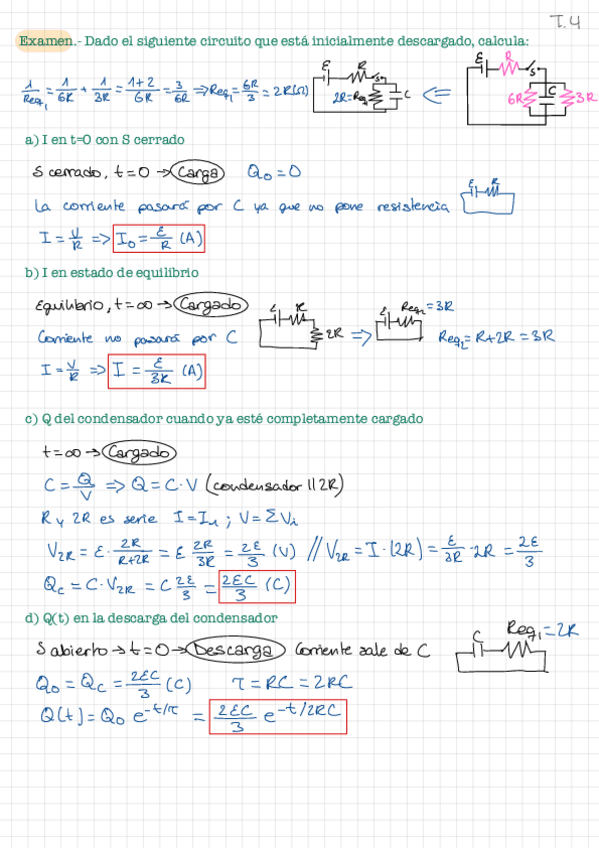 T.4
Examen.- Dado el siguiente circuito que está inicialmente descargado, calcula:
1/Req₁ = 1/6R + 1/3R = 1+2/6R = 3/6R => Req₁ = 6R/3 = 2R(Ω)
ε R S 2R=Req₁ C <= ε R S 6R C 3R
a) I en t=0 con S cerrado
S cerrado, t=0 → Carga Q₀=0
La corriente pasará por C ya que no pone resistencia ε R
I = V/R => I₀ = ε/R (A)
b) I en estado de equilibrio
Equilibrio, t=∞ → Cargado ε R 2R => ε Req₂=3R
Corriente no pasará por C Req₂=R+2R=3R
I = V/R => I = ε/3R (A)
c) Q del condensador cuando ya esté completamente cargado
t=∞ → Cargado
C = Q/V => Q = C·V (condensador || 2R)
R y 2R es serie I=Iᵢ ; V=ΣVᵢ
V₂R = ε· 2R/R+2R = ε 2R/3R = 2ε/3 (V) // V₂R = I·(2R) = ε/3R ·2R = 2ε/3
Qc = C·V₂R = C 2ε/3 = 2εC/3 (C)
d) Q(t) en la descarga del condensador
S abierto → t=0 → Descarga Corriente sale de C C Req₁=2R
Q₀ = Qc = 2εC/3 (C) τ = RC = 2RC
Q(t) = Q₀ e^-t/τ = 2εC/3 e^-t/2RC